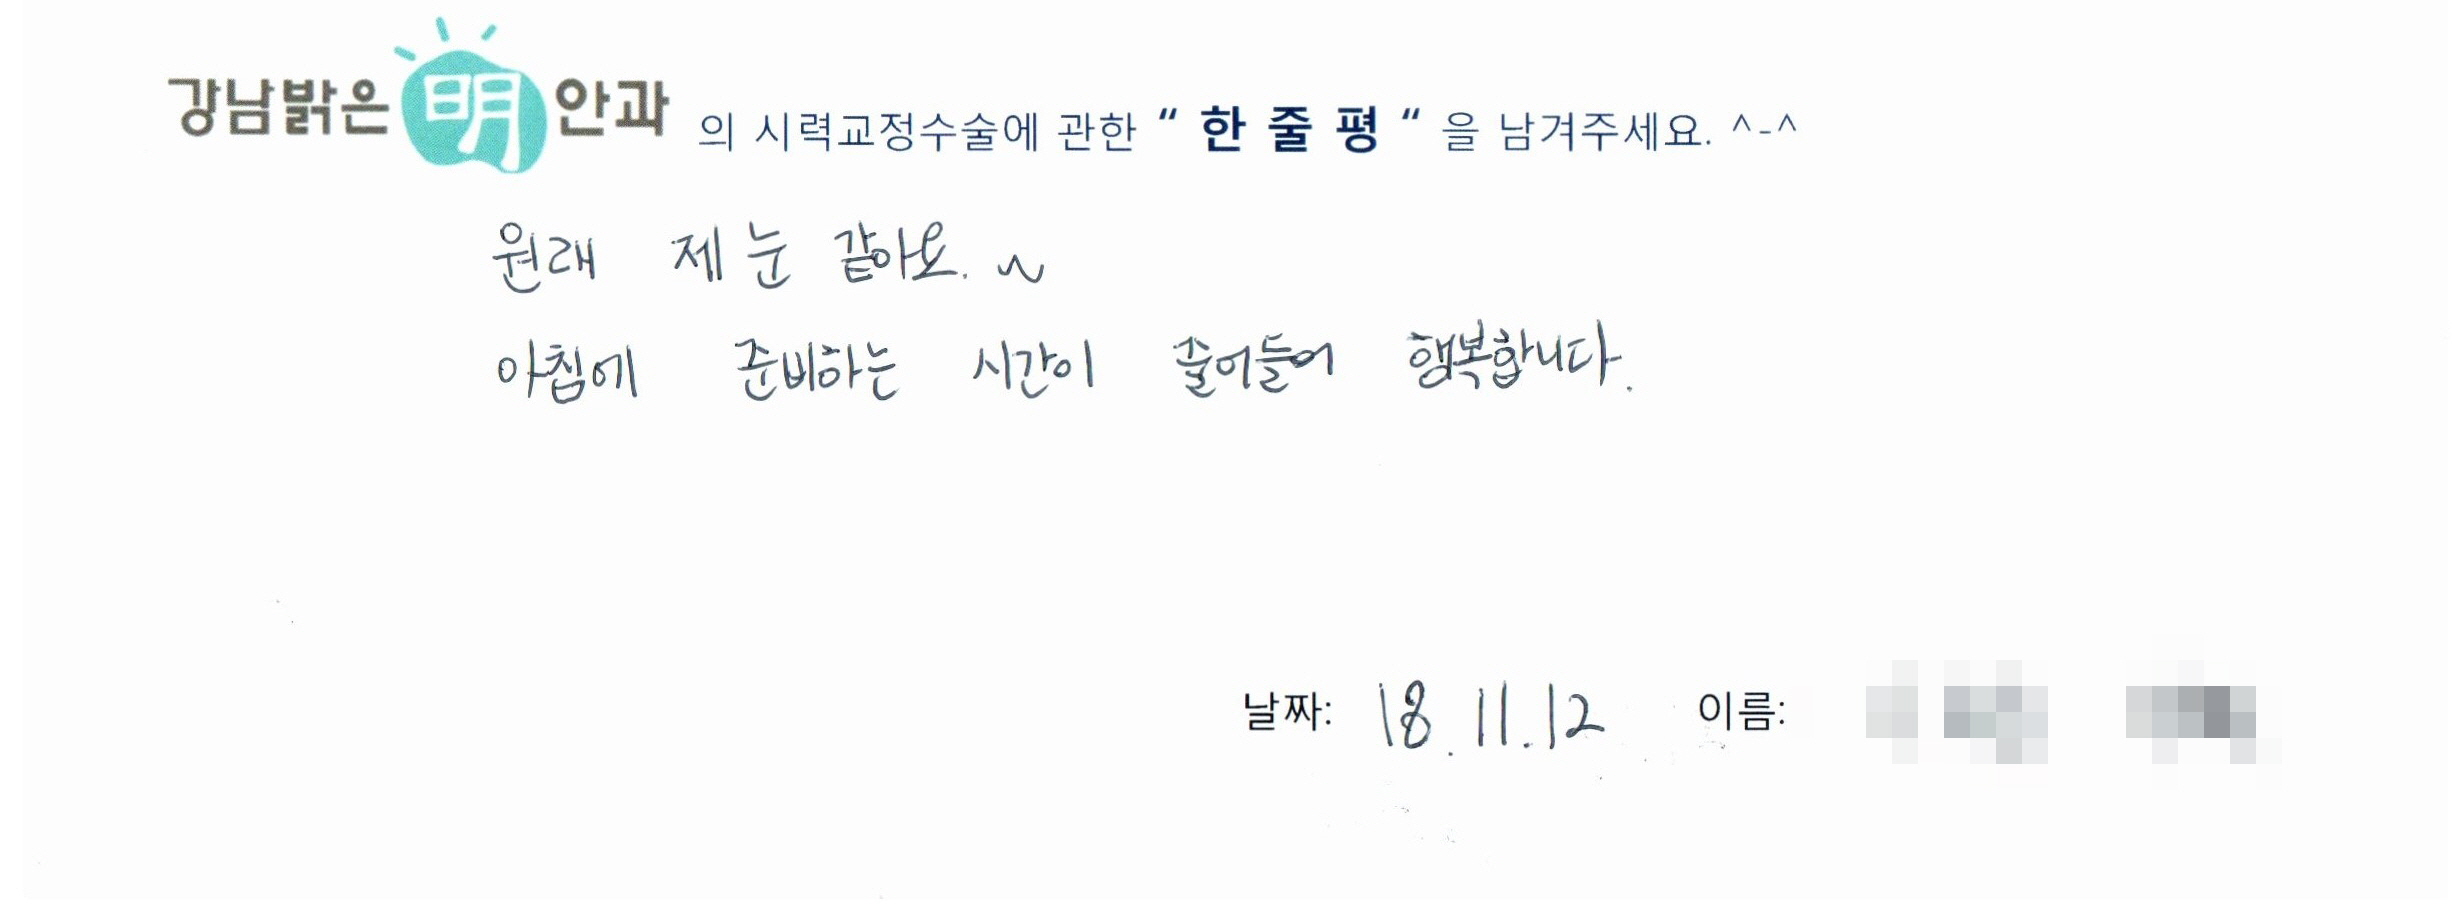 강남밝은明안과 의 시력교정수술에 관한 “ 한 줄 평 “ 을 남겨주세요. ^-^
원래 제 눈 같아요. ~
아침에 준비하는 시간이 줄어들어 행복합니다.
날짜: 18. 11. 12 이름: